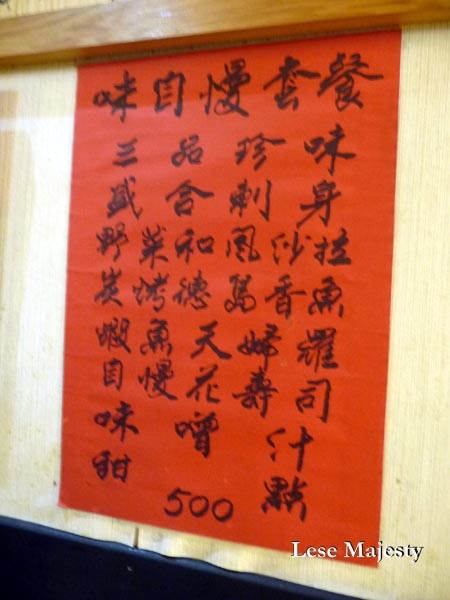 味自慢套餐
三品珍味
盛合刺身
野菜和風沙拉
炭烤德島香魚
蝦魚天婦羅
自慢花壽司
味噌汁
甜點
500
Lese Majesty